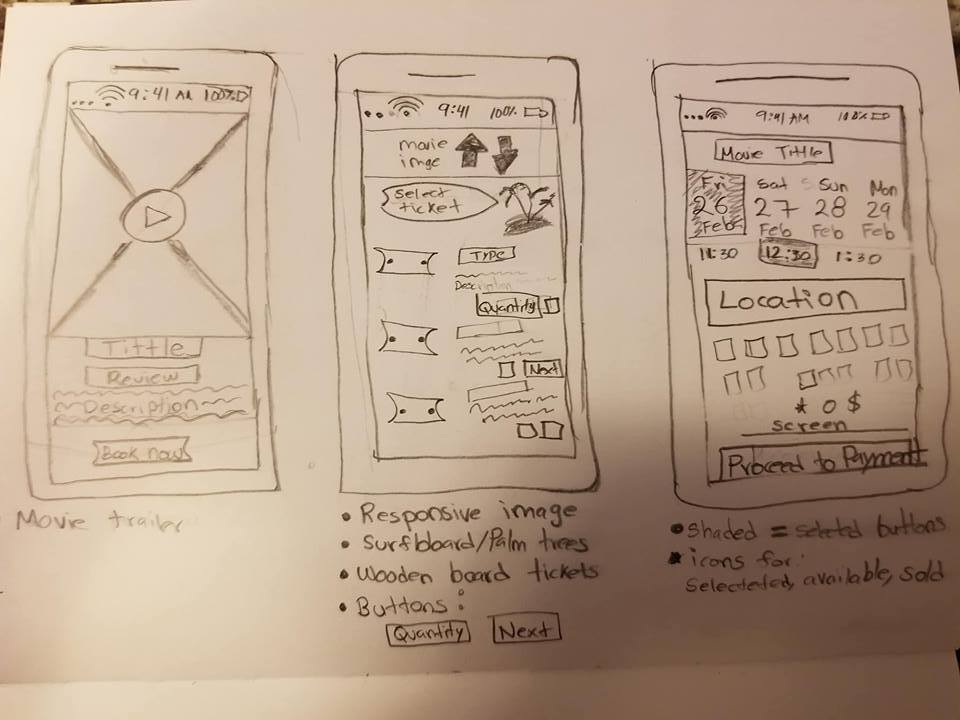 9:41 AM 100%
Tittle
Review
Description
Book now
Movie trailer
9:41 100%
movie
imge
Select
ticket
Type
Description
Quantity
Next
• Responsive image
• Surfbboard/Palm trees
• Wooden board tickets
• Buttons:
Quantity Next
9:41 AM 100%
Movie Tittle
Fri Sat Sun Mon
26 27 28 29
Feb Feb Feb Feb
11:30 12:30 1:30
Location
* O $
screen
Proceed to Payment
• Shaded = seleted buttons
* icons for:
Selecteted, available, sold